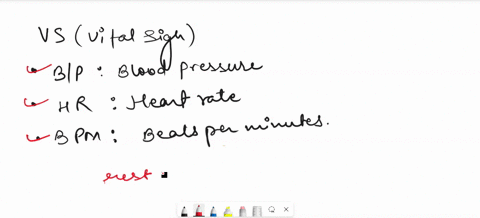 VS (Vital Sign)
B/P : Blood pressure
HR : Heart rate
BPM : Beats per minutes.
rest